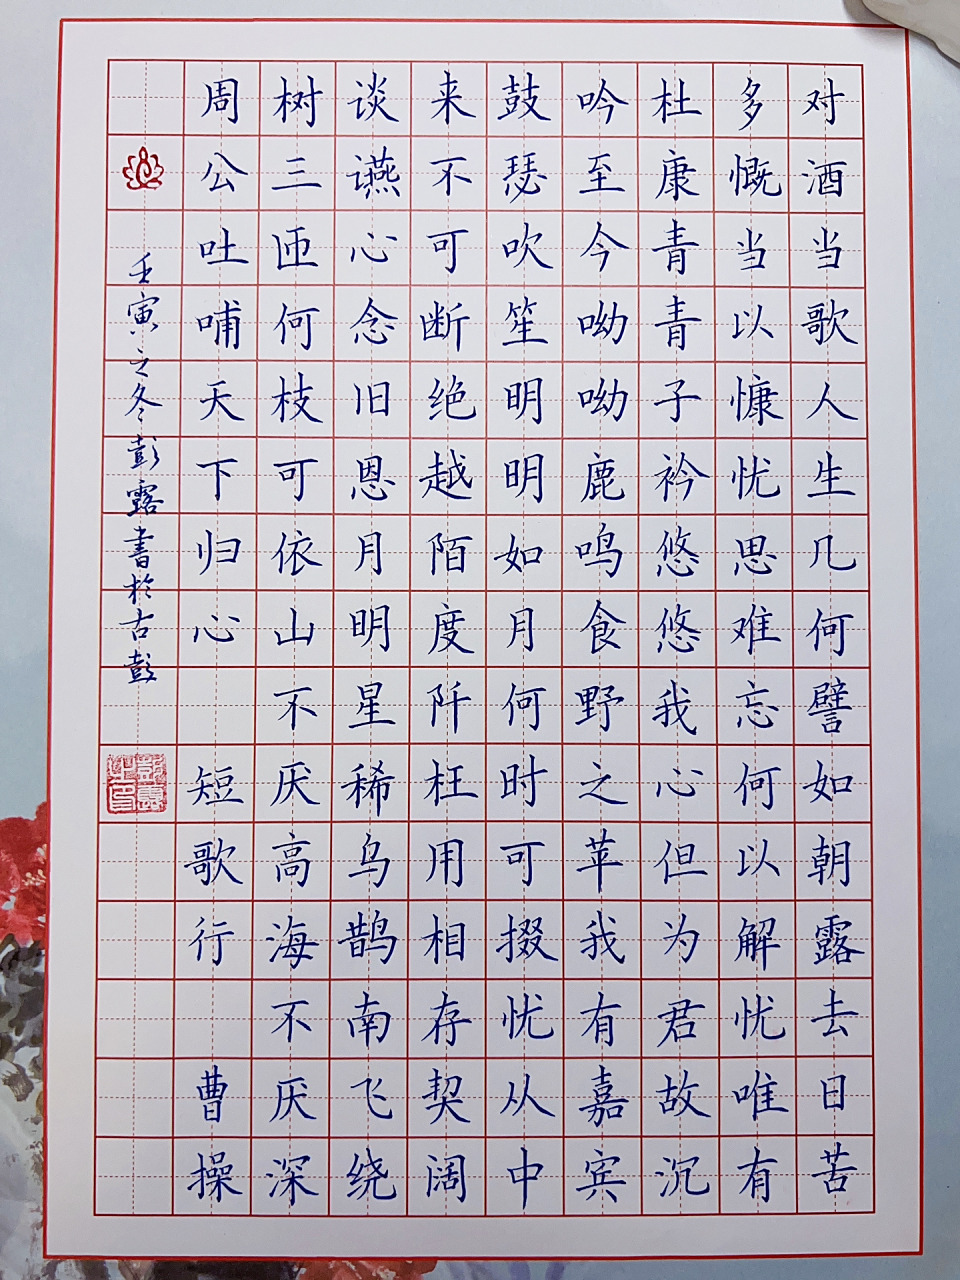 对酒当歌人生几何譬如朝露去日苦
多慨当以慷忧思难忘何以解忧唯有
杜康青青子衿悠悠我心但为君故沉
吟至今呦呦鹿鸣食野之苹我有嘉宾
鼓瑟吹笙明明如月何时可掇忧从中
来不可断绝越陌度阡枉用相存契阔
谈䜩心念旧恩月明星稀乌鹊南飞绕
树三匝何枝可依山不厌高海不厌深
周公吐哺天下归心 短歌行 曹操
壬寅之冬彭露書於古彭
彭露之印